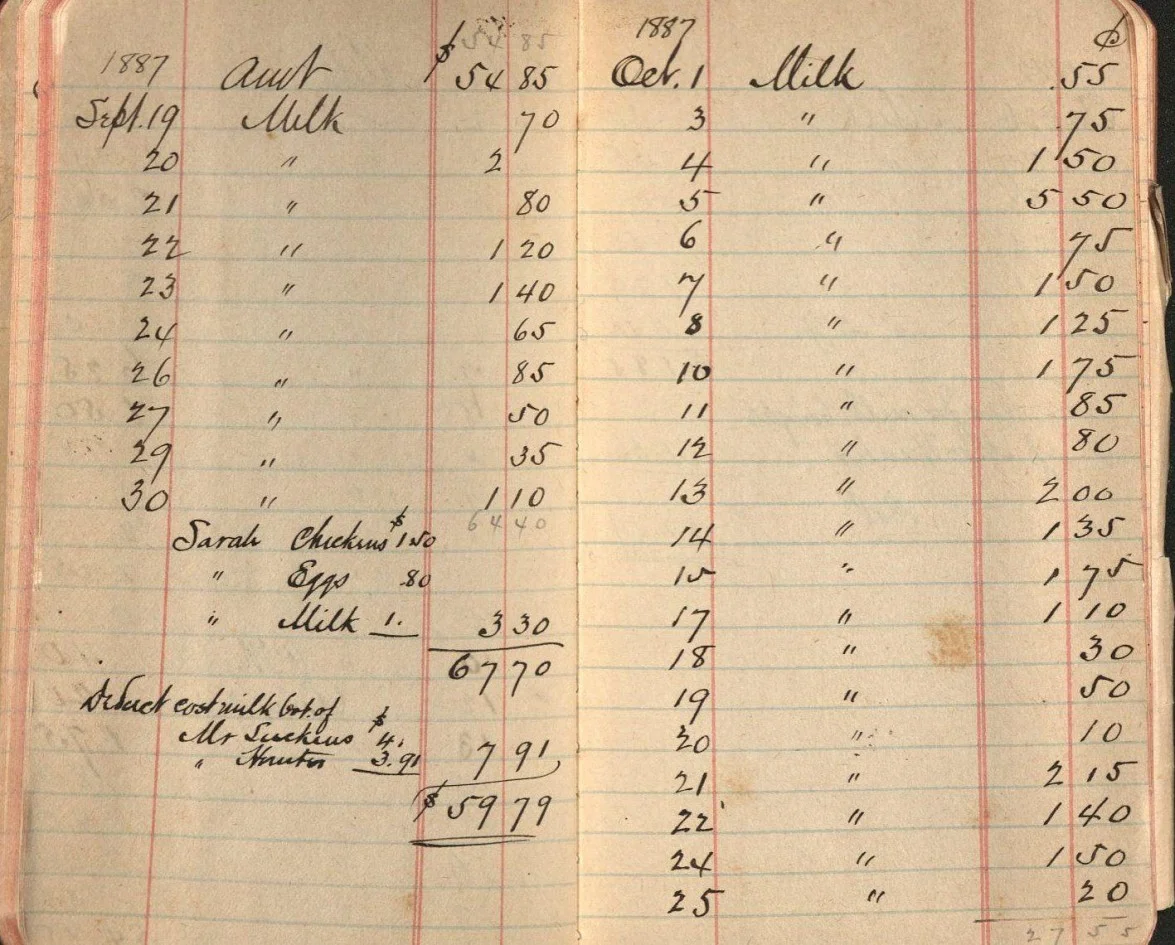 54 85
1887 Amt $ 54 85
Sept. 19 Milk 70
20 " 2
21 " 80
22 " 1 20
23 " 1 40
24 " 65
26 " 85
27 " 50
29 " 35
30 " 1 10
64 40
Sarah Chickens $1.50
" Eggs .80
" Milk 1. 3 30
67 70
Deduct cost milk bot. of
Mr $ 4.
" 3.91 7 91
$ 59 79
1887 ¢
Oct. 1 Milk .55
3 " 75
4 " 1 50
5 " 5 50
6 " 75
7 " 1 50
8 " 1 25
10 " 1 75
11 " 85
12 " 80
13 " 2 00
14 " 1 35
15 " 1 75
17 " 1 10
18 " 30
19 " 50
20 " 10
21 " 2 15
22 " 1 40
24 " 1 50
25 " 20
27 55